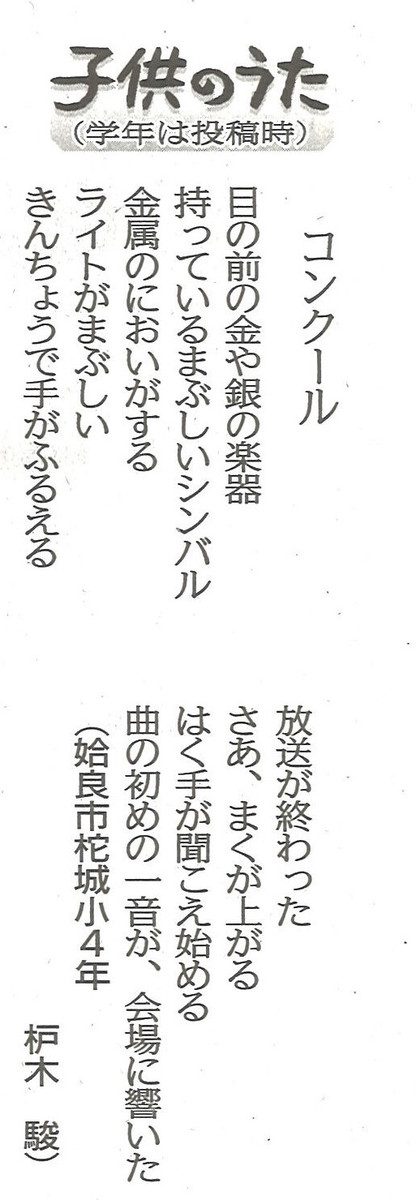 子供のうた
（学年は投稿時）
コンクール
目の前の金や銀の楽器
持っているまぶしいシンバル
金属のにおいがする
ライトがまぶしい
きんちょうで手がふるえる
放送が終わった
さあ、まくが上がる
はく手が聞こえ始める
曲の初めの一音が、会場に響いた
（姶良市柁城小４年
枦木　駿）